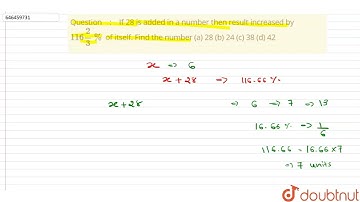 646459731
Question : If 28 is added in a number then result increased by
116 2/3 % of itself. Find the number (a) 28 (b) 24 (c) 38 (d) 42
x ⇒ 6
x + 28 → 116.66 %
x + 28 → 6 → 7 → 13
16.66 % → 1/6
116.66 = 16.66 × 7
⇒ 7 units
doubtnut